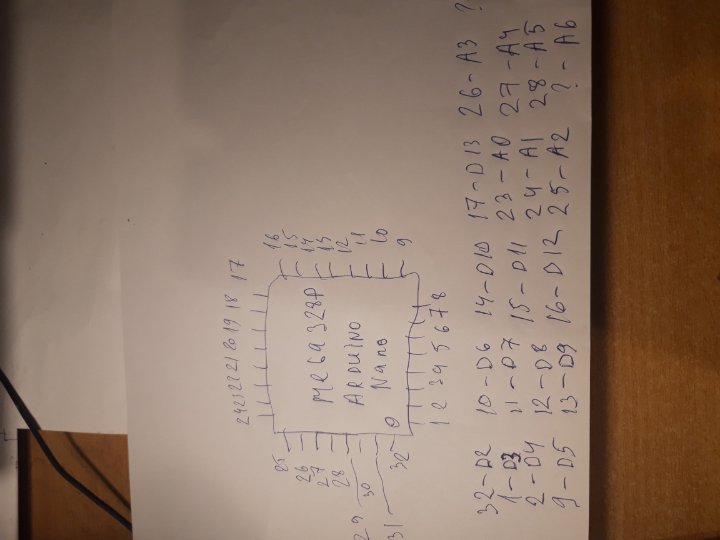 24 23 22 21 20 19 18 17
25
16
26
15
27
14
28
13
12
29
30
11
10
31
32
9
MEGA 328P
ARDUINO
Nano
1 2 3 4 5 6 7 8
32-D2 10-D6 14-D10 17-D13 26-A3 ?
1-D3 11-D7 15-D11 23-A0 27-A4
2-D4 12-D8 24-A1 28-A5
9-D5 13-D9 16-D12 25-A2 ?-A6